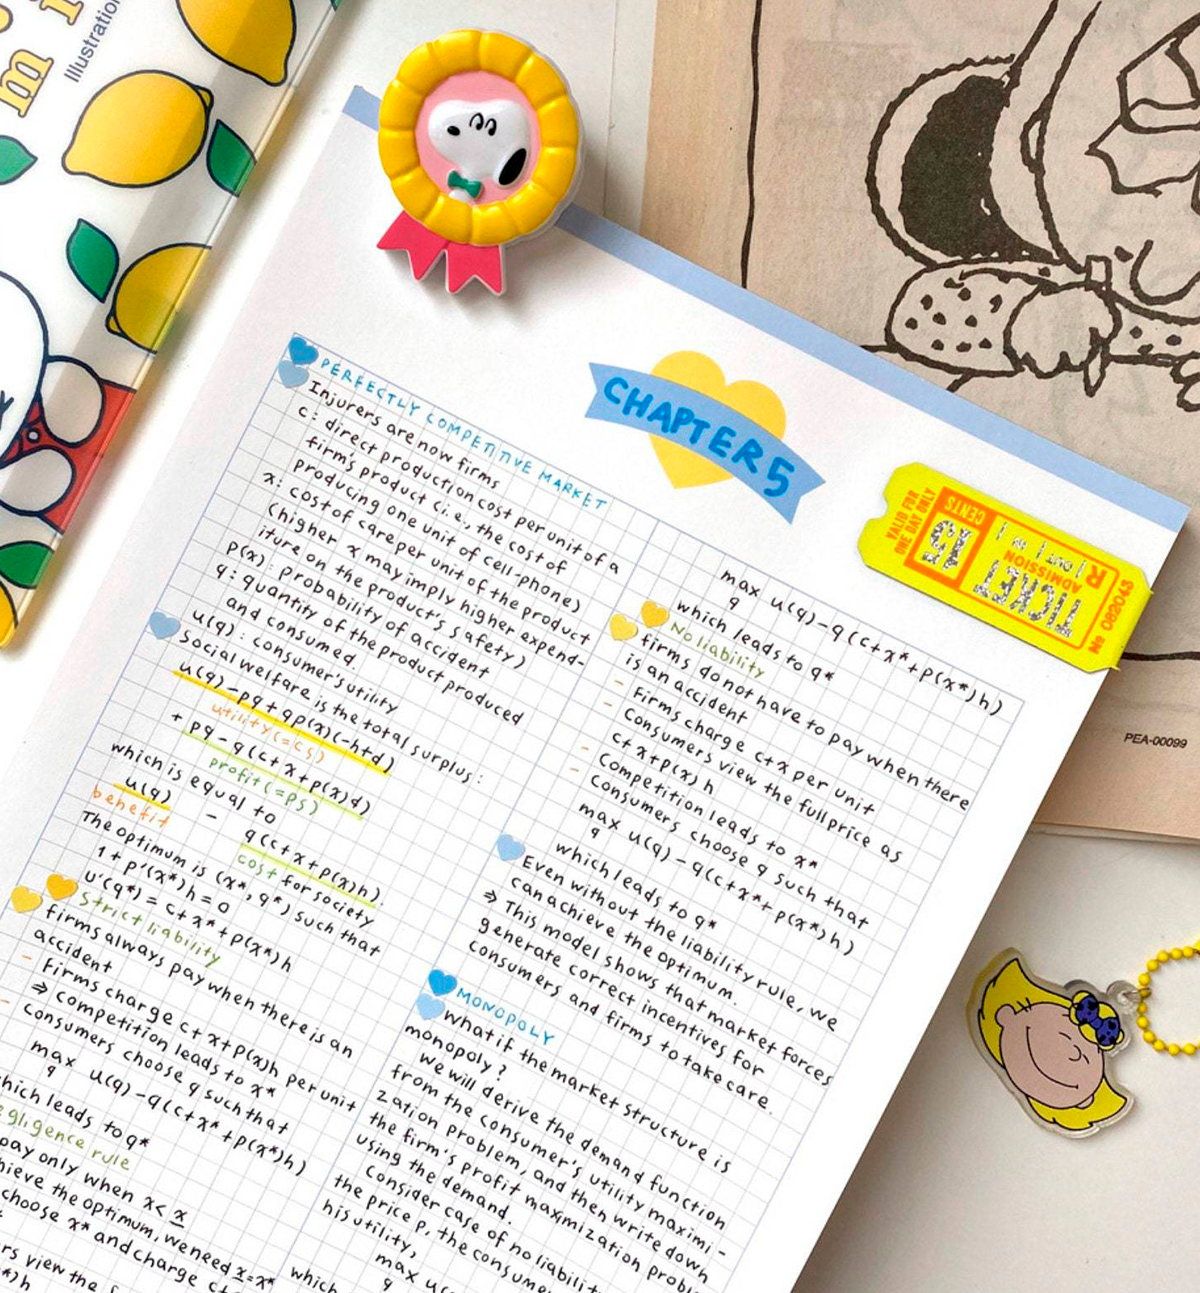 Illustration
CHAPTER 5
VALID FOR
ONE DAY ONLY
15
CENTS
TICKET
ADMISSION
№ 082043
PEA-00099
PERFECTLY COMPETITIVE MARKET
Injurers are now firms
c: direct production cost per unit of a
firm's product (i.e., the cost of
producing one unit of cell-phone)
x: cost of care per unit of the product
(higher x may imply higher expend-
iture on the product's safety)
p(x): probability of accident
q: quantity of the product produced
and consumed.
u(q): consumer's utility
Social welfare is the total surplus:
u(q)-pq+qp(x)(-h+d)
utility(=cs)
+ pq-q(c+x+p(x)d)
profit(=ps)
which is equal to
u(q) - q(c+x+p(x)h).
benefit cost for society
The optimum is (x*, q*) such that
1+p'(x*)h=0
u'(q*)=c+x*+p(x*)h
Strict liability
firms always pay when there is an
accident
- Firms charge c+x+p(x)h per unit
⇒ competition leads to x*
- Consumers choose q such that
max u(q)-q(c+x*+p(x*)h)
q
which leads to q*
negligence rule
pay only when x<x
achieve the optimum, we need x=x*
choose x* and charge c+
view the
*)h
max u(q)-q(c+x*+p(x*)h)
q
which leads to q*
No liability
firms do not have to pay when there
is an accident
- Firms charge c+x per unit
- Consumers view the full price as
c+x+p(x)h
- Competition leads to x*
- Consumers choose q such that
max u(q)-q(c+x*+p(x*)h)
q
which leads to q*
Even without the liability rule, we
can achieve the optimum.
⇒ This model shows that market forces
generate correct incentives for
consumers and firms to take care.
MONOPOLY
What if the market structure is
monopoly?
We will derive the demand function
from the consumer's utility maximi-
zation problem, and then write down
the firm's profit maximization problem
using the demand.
Consider case of no liability
the price p, the consumer
his utility,
max u(
q
which